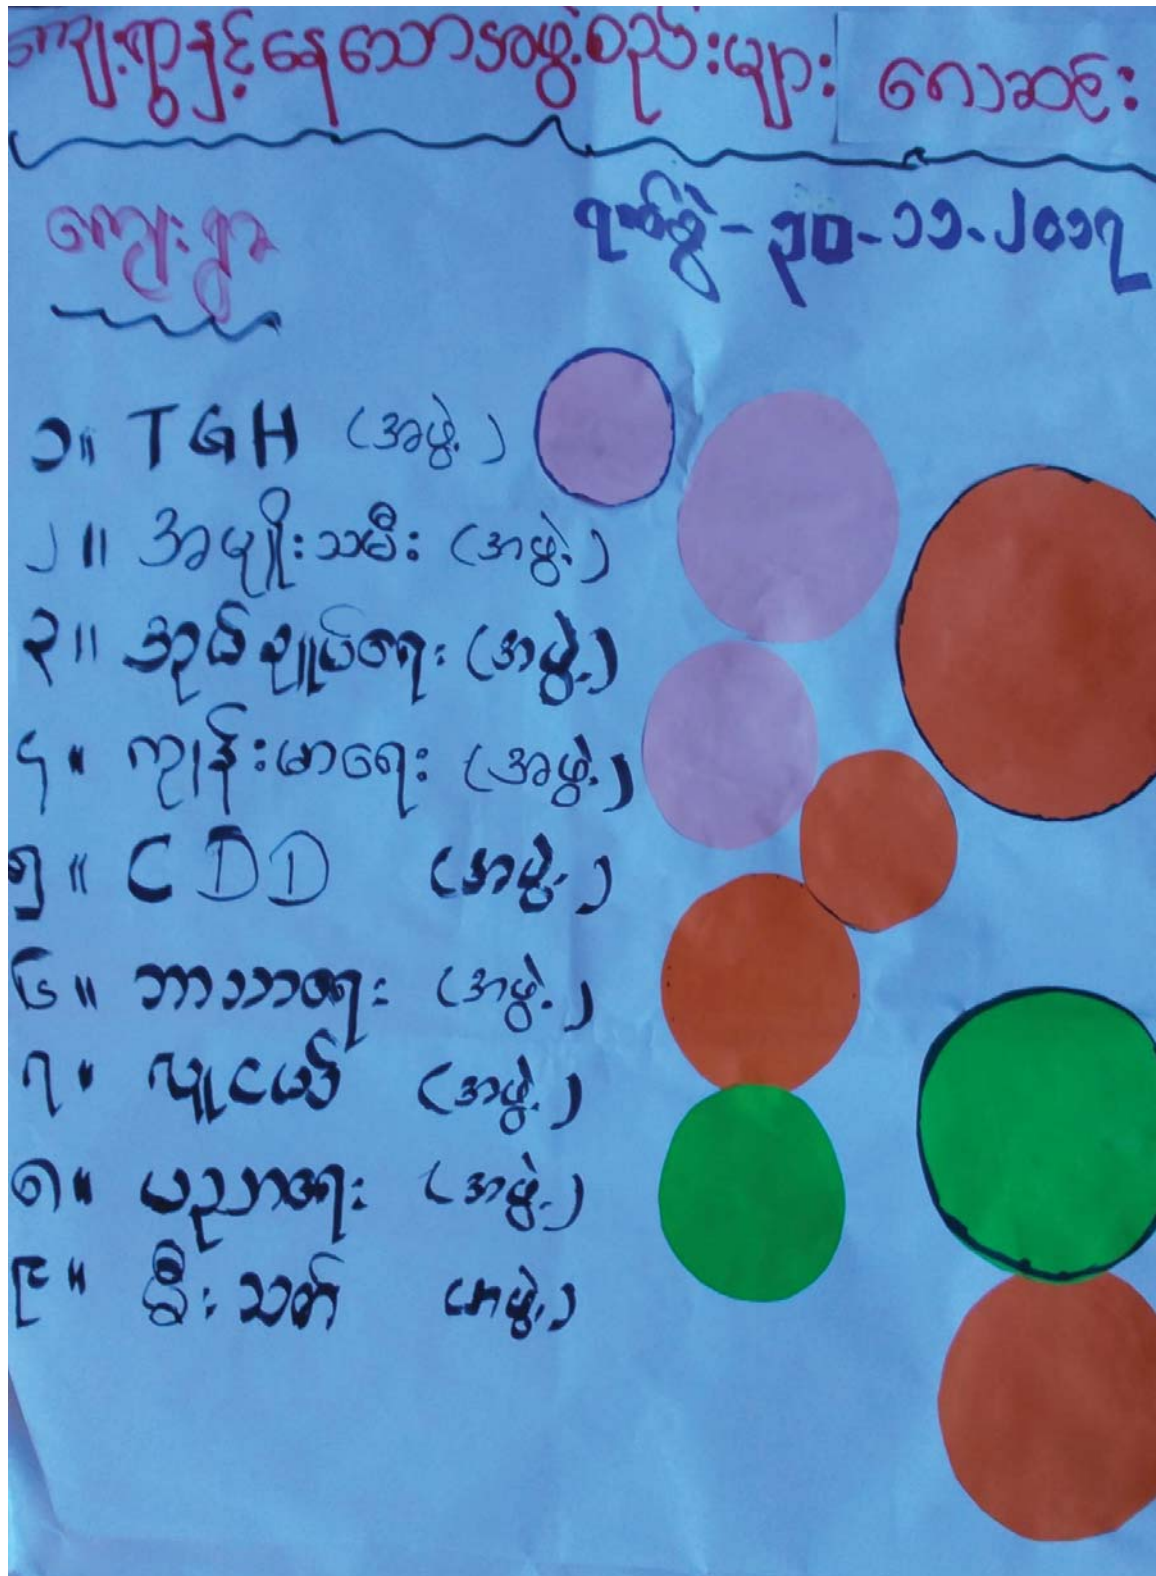 ကျေးရွာနှင့်နေသောအဖွဲ့စည်းများ ဂေါဆင်း
ကျေးရွာ
ရက်စွဲ - ၃၀-၁၁-၂၀၁၇
၁။ TGH (အဖွဲ့)
၂။ အမျိုးသမီး (အဖွဲ့)
၃။ အုပ်ချုပ်ရေး (အဖွဲ့)
၄။ ကျန်းမာရေး (အဖွဲ့)
၅။ CDD (အဖွဲ့)
၆။ ဘာသာရေး (အဖွဲ့)
၇။ လူငယ် (အဖွဲ့)
၈။ ပညာရေး (အဖွဲ့)
၉။ မီးသတ် (အဖွဲ့)